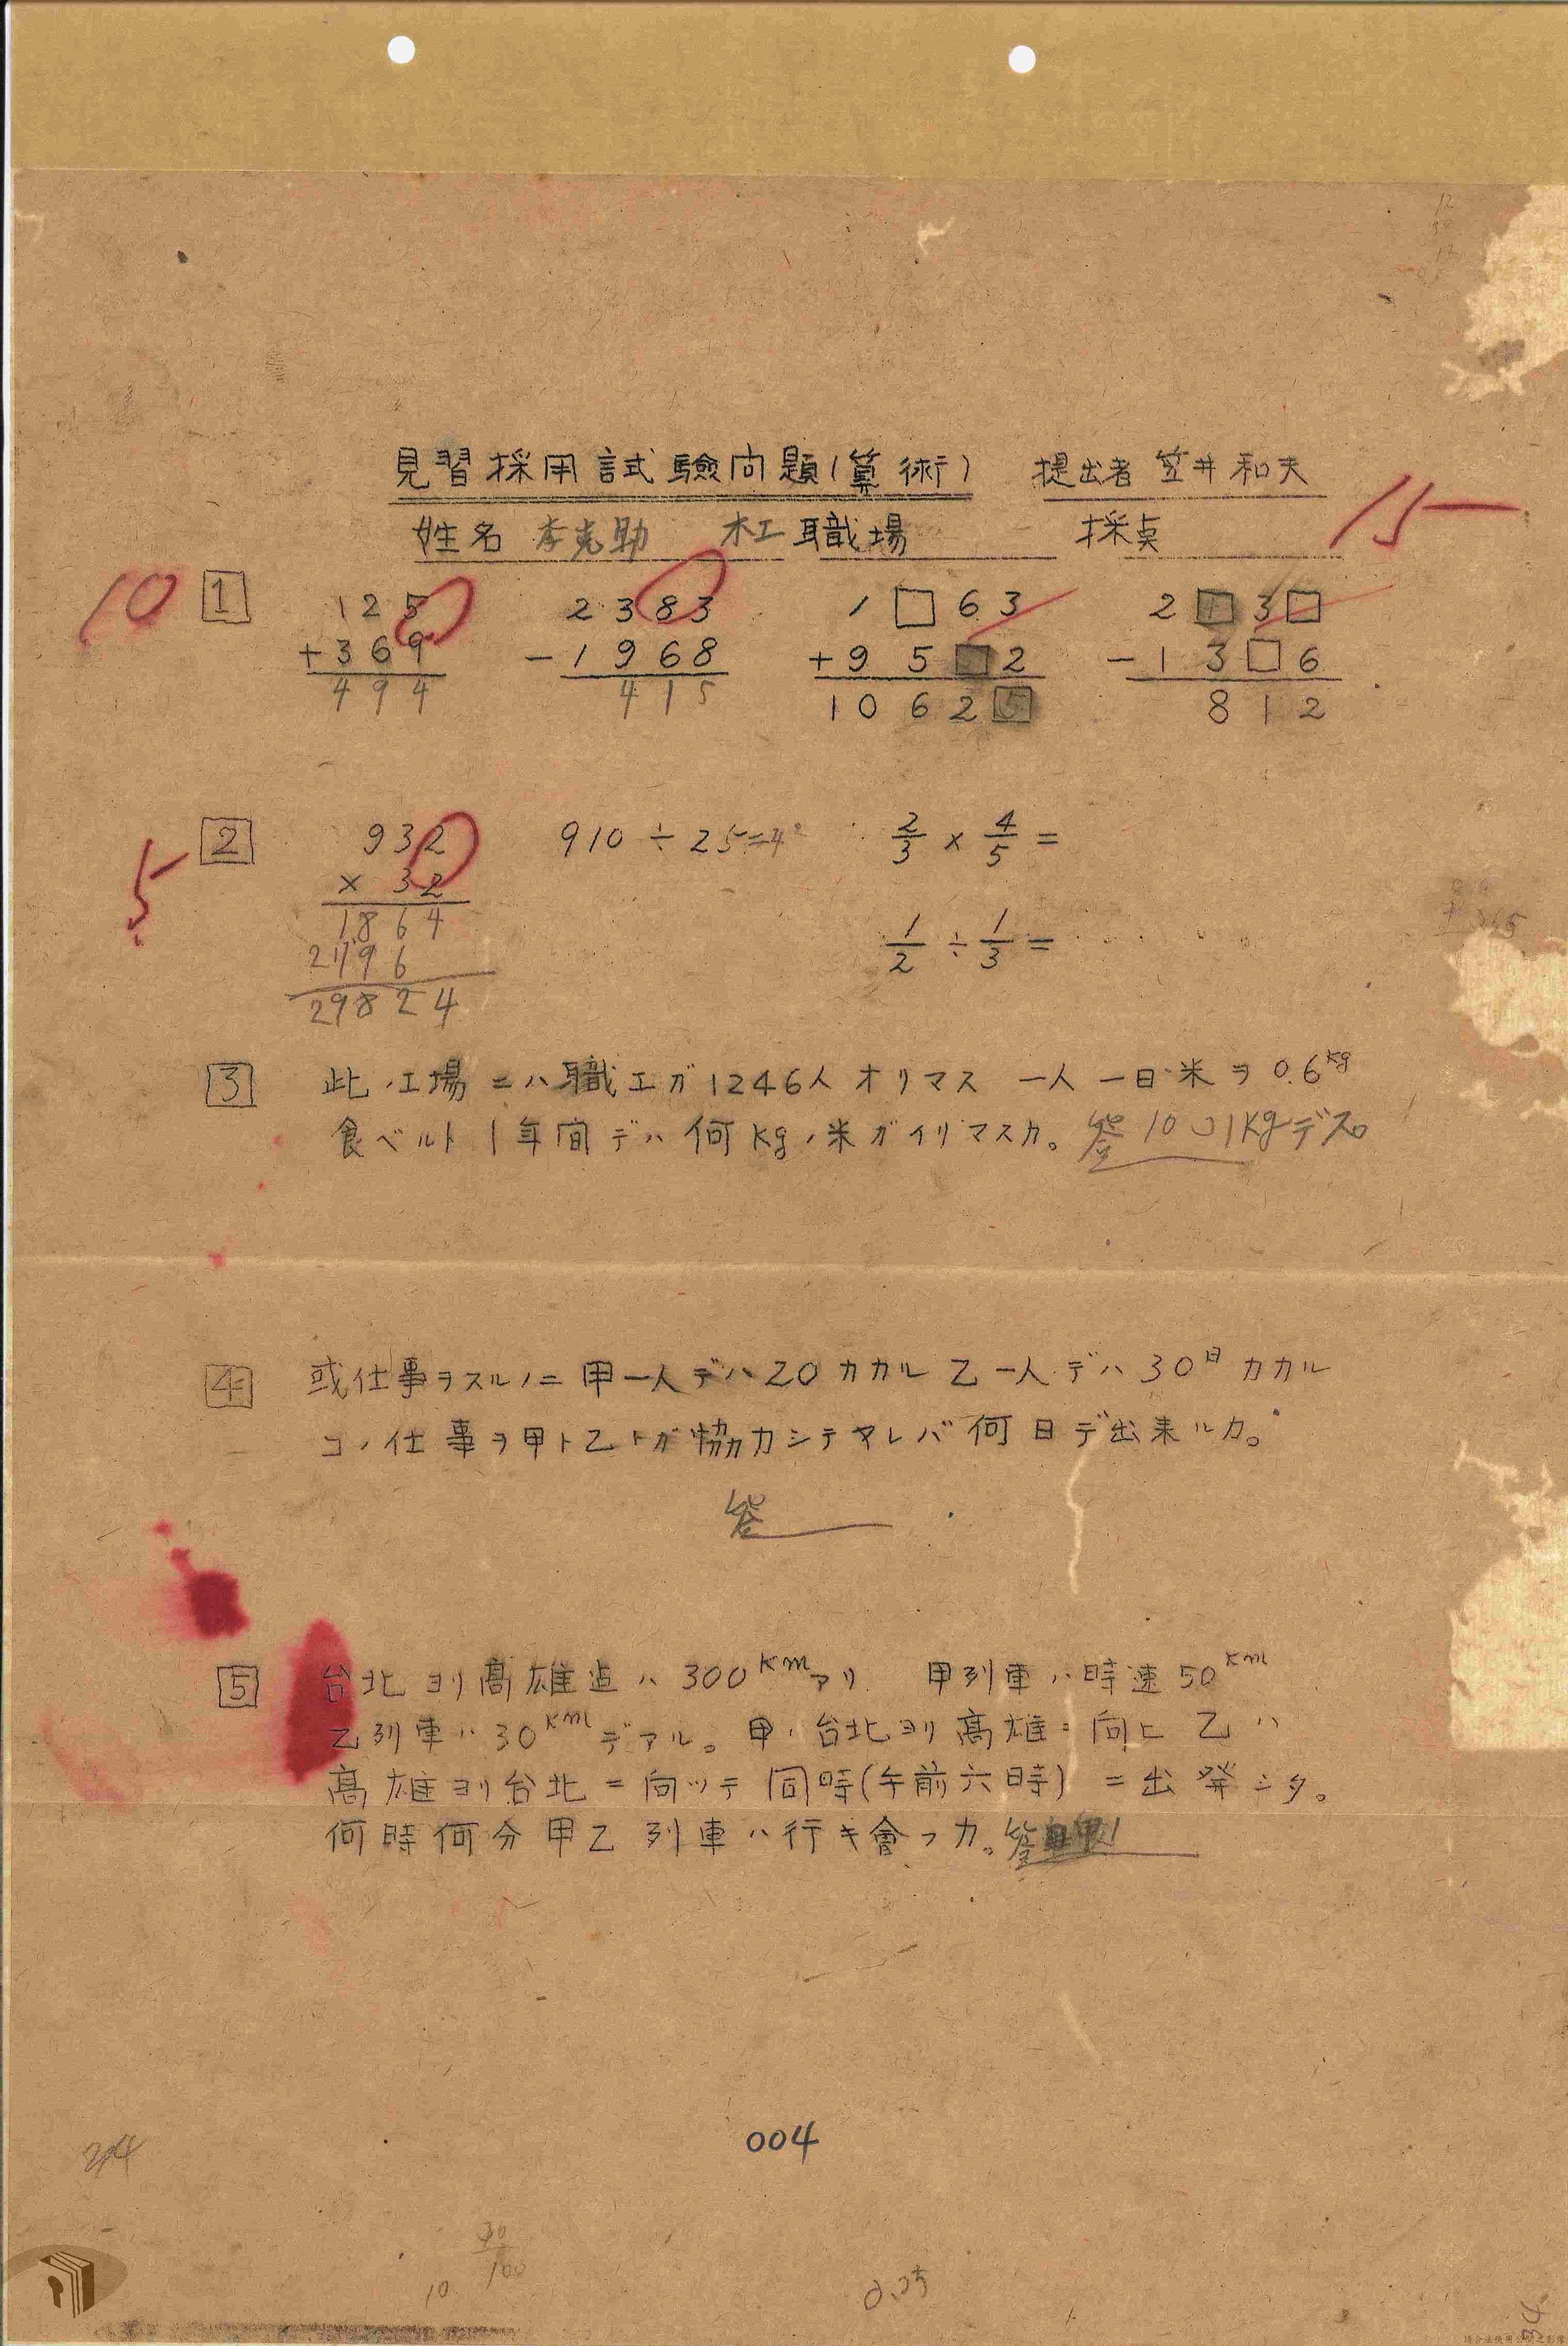 見習採用試驗問題(算術) 提出者 笠井和夫
姓名 李克助 木工職場 採点 15
10 1 125 2383 1□63 2□3□
+369 -1968 +95□2 -13□6
494 415 1062□ 812
5 2 932 910÷25=4 2/3 × 4/5 =
× 32
1864 1/2 ÷ 1/3 =
2796
29824
3 此ノ工場ニハ職工ガ1246人オリマス 一人一日米ヲ0.6kg
食ベルト1年間デハ何kgノ米ガイリマスカ。答 kgデス。
4 或仕事ヲスルノニ甲一人デハ20カカル乙一人デハ30日カカル
コノ仕事ヲ甲ト乙トガ協力シテヤレバ何日デ出来ルカ。
答
5 台北ヨリ高雄迠ハ300kmアリ 甲列車ハ時速50km
乙列車ハ30kmデアル。甲ハ台北ヨリ高雄ニ向ヒ乙ハ
高雄ヨリ台北ニ向ッテ同時(午前六時)ニ出発シタ。
何時何分甲乙列車ハ行キ會フカ。答
004
24
30
10 100
0.25
34